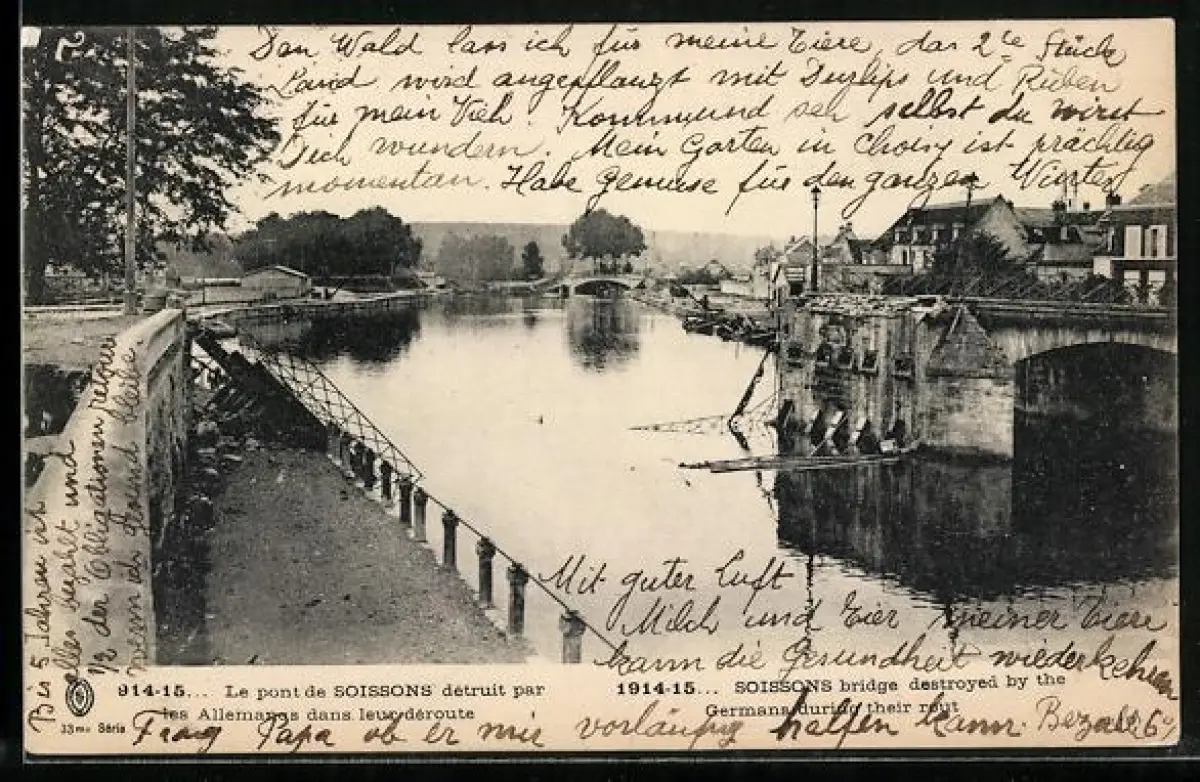 Den Wald lass ich für meine Tiere, das 2te Stück
Land wird angepflanzt mit Durlips und Rüben
für mein Vieh. Komm und seh selbst du wirst
Dich wundern. Mein Garten in Choisy ist prächtig
momentan. Habe Gemüse für den ganzen Winter
Mit guter Luft
Milch und Eier meiner Tiere
kann die Gesundheit wiederkehren
Bis 5 Jahren ist
alles bezahlt und
1/2 der Obligationen retour
wenn ich gesund bleibe
914-15... Le pont de SOISSONS détruit par
les Allemands dans leur déroute
33me Série
1914-15... SOISSONS bridge destroyed by the
Germans during their rout
Frag Papa ob er mir vorläufig helfen kann. Bezahl 6%